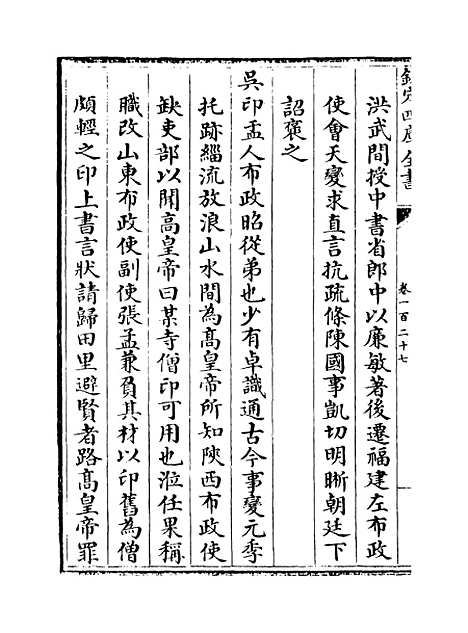 欽定四庫全書
卷一百二十七
洪武間授中書省郎中以廉敏著後遷福建左布政
使會天變求直言抗疏條陳國事凱切明晰朝廷下
詔褒之
吳印盂人布政昭從弟也少有卓識通古今事變元季
托跡緇流放浪山水間為髙皇帝所知陝西布政使
缺吏部以聞高皇帝曰某寺僧印可用也涖任果稱
職改山東布政使副使張孟兼負其材以印舊為僧
頗輕之印上書言狀請歸田里避賢者路髙皇帝罪